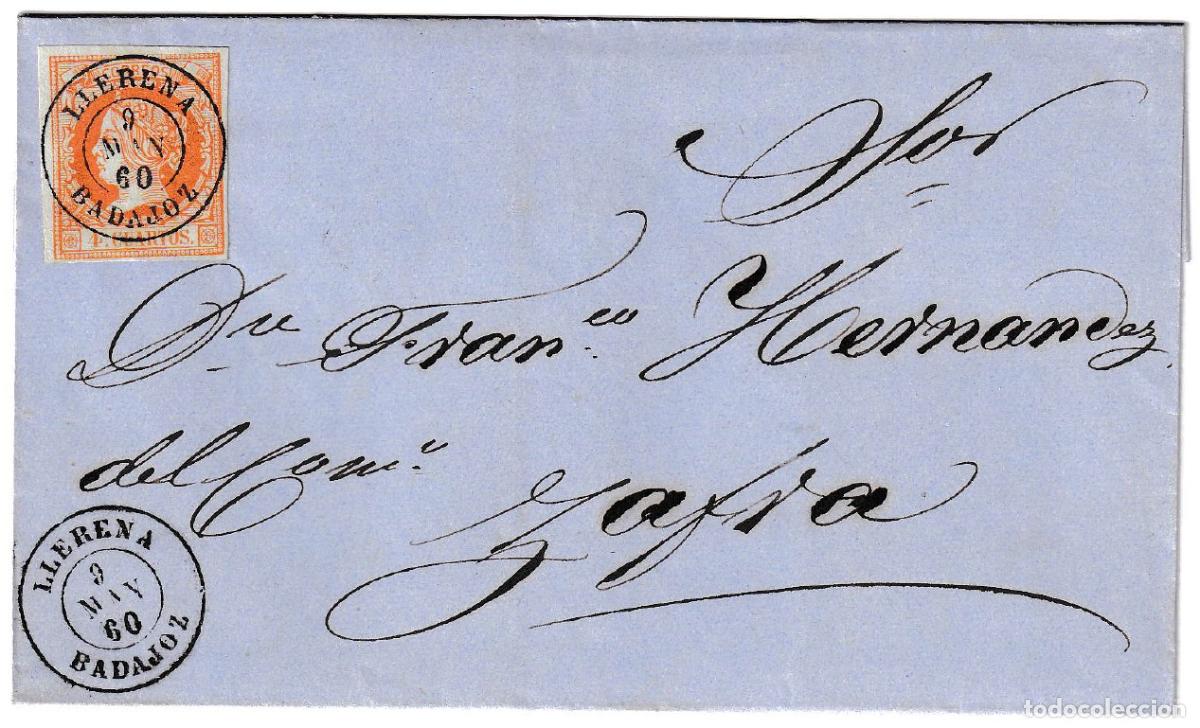 LLERENA
9
MAY
60
BADAJOZ
4 CUARTOS.
Sor
Dn Fran.co Hernandez
del Com.o
Zafra
LLERENA
9
MAY
60
BADAJOZ
todocoleccion